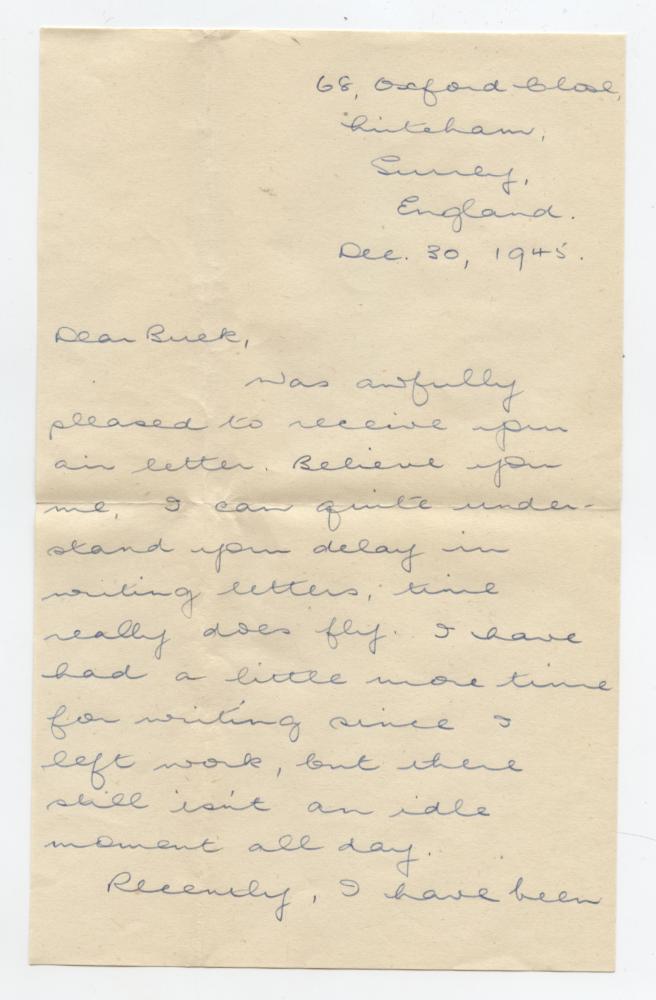 68, Oxford Close,
Mitcham,
Surrey,
England.
Dec. 30, 1945.
Dear Buck,
Was awfully
pleased to receive your
air letter. Believe you
me, I can quite under-
stand your delay in
writing letters, time
really does fly. I have
had a little more time
for writing since I
left work, but there
still isn't an idle
moment all day.
Recently, I have been